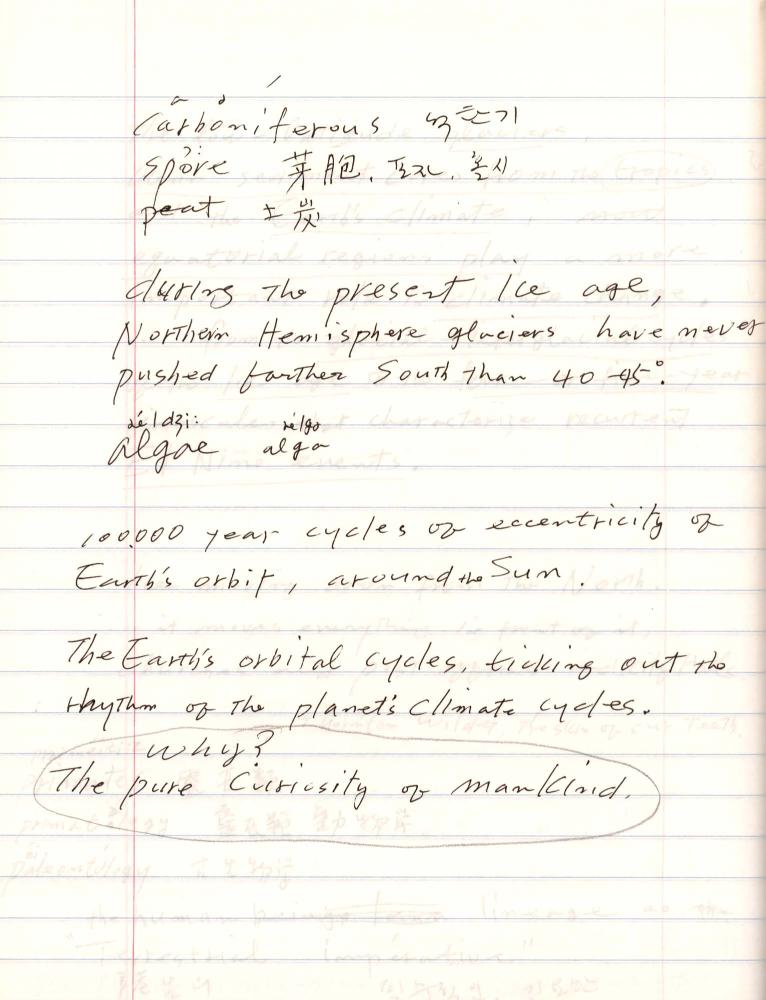 Carboniferous 석탄기
spore 芽胞, 포자, 홀씨
peat 土炭
during The present Ice age,
Northern Hemisphere glaciers have never
pushed farther South than 40-45°.
ǽldʒi: ǽlgə
algae alga
100,000 year cycles of eccentricity of
Earth's orbit, around the Sun.
The Earth's orbital cycles, ticking out the
rhythm of The planet's Climate cycles.
why?
The pure Curiosity of mankind.